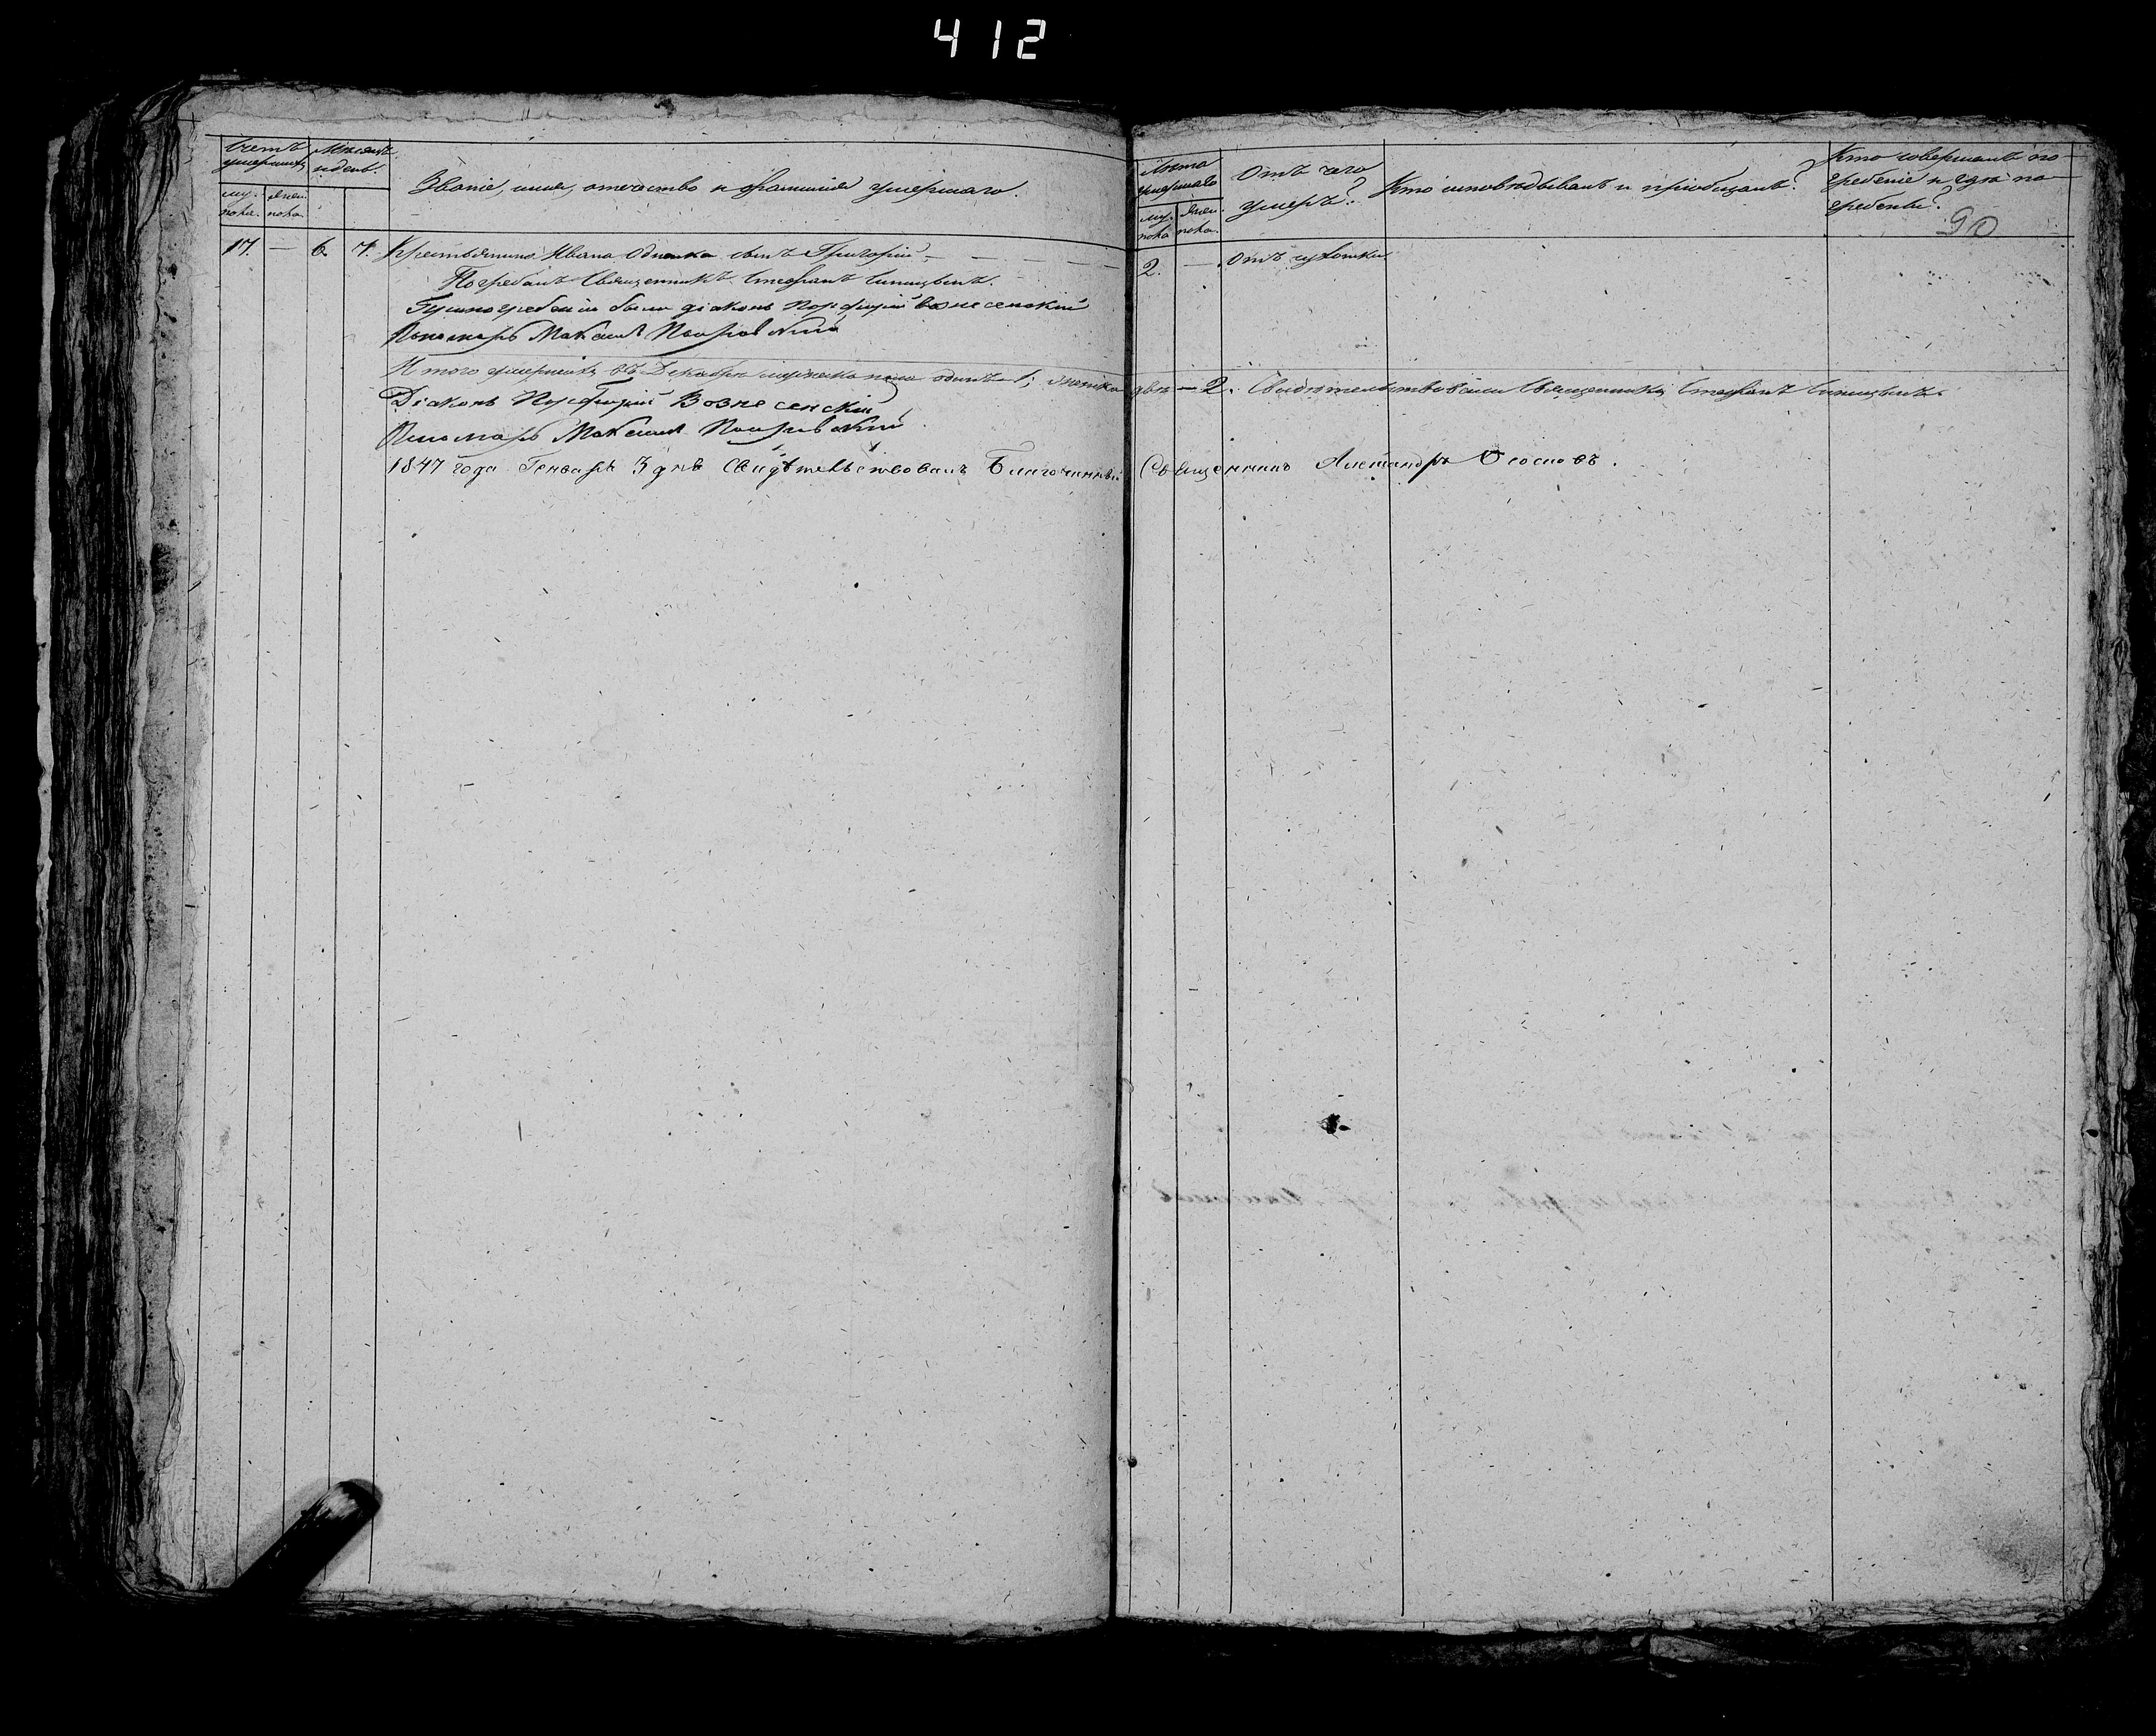 412
Счетъ умершихъ
Мѣсяцъ и день.
Званіе, имя, отчество и фамилія умершаго.
Лѣта умершаго
Отъ чего умеръ?
Кто исповѣдывалъ и пріобщалъ?
Кто совершалъ погребеніе и гдѣ погребены?
муж. женска.
90
17. — 6. 7. Крестьянина Ивана сынъ Григорій. — 2. — Отъ сухотки
Погребалъ Священникъ Стефанъ
При погребеніи были діаконъ Порфирій Вознесенскій
Пономарь Максимъ Покровскій
Итого умершихъ въ Декабрѣ мужеска пола одинъ — 1; женска двѣ — 2. Свидѣтельствовали Священникъ Стефанъ
Діаконъ Порфирій Вознесенскій
Пономарь Максимъ Покровскій
1847 года Генваря 3 дня Свидѣтельствовалъ Благочинный Священникъ Александръ